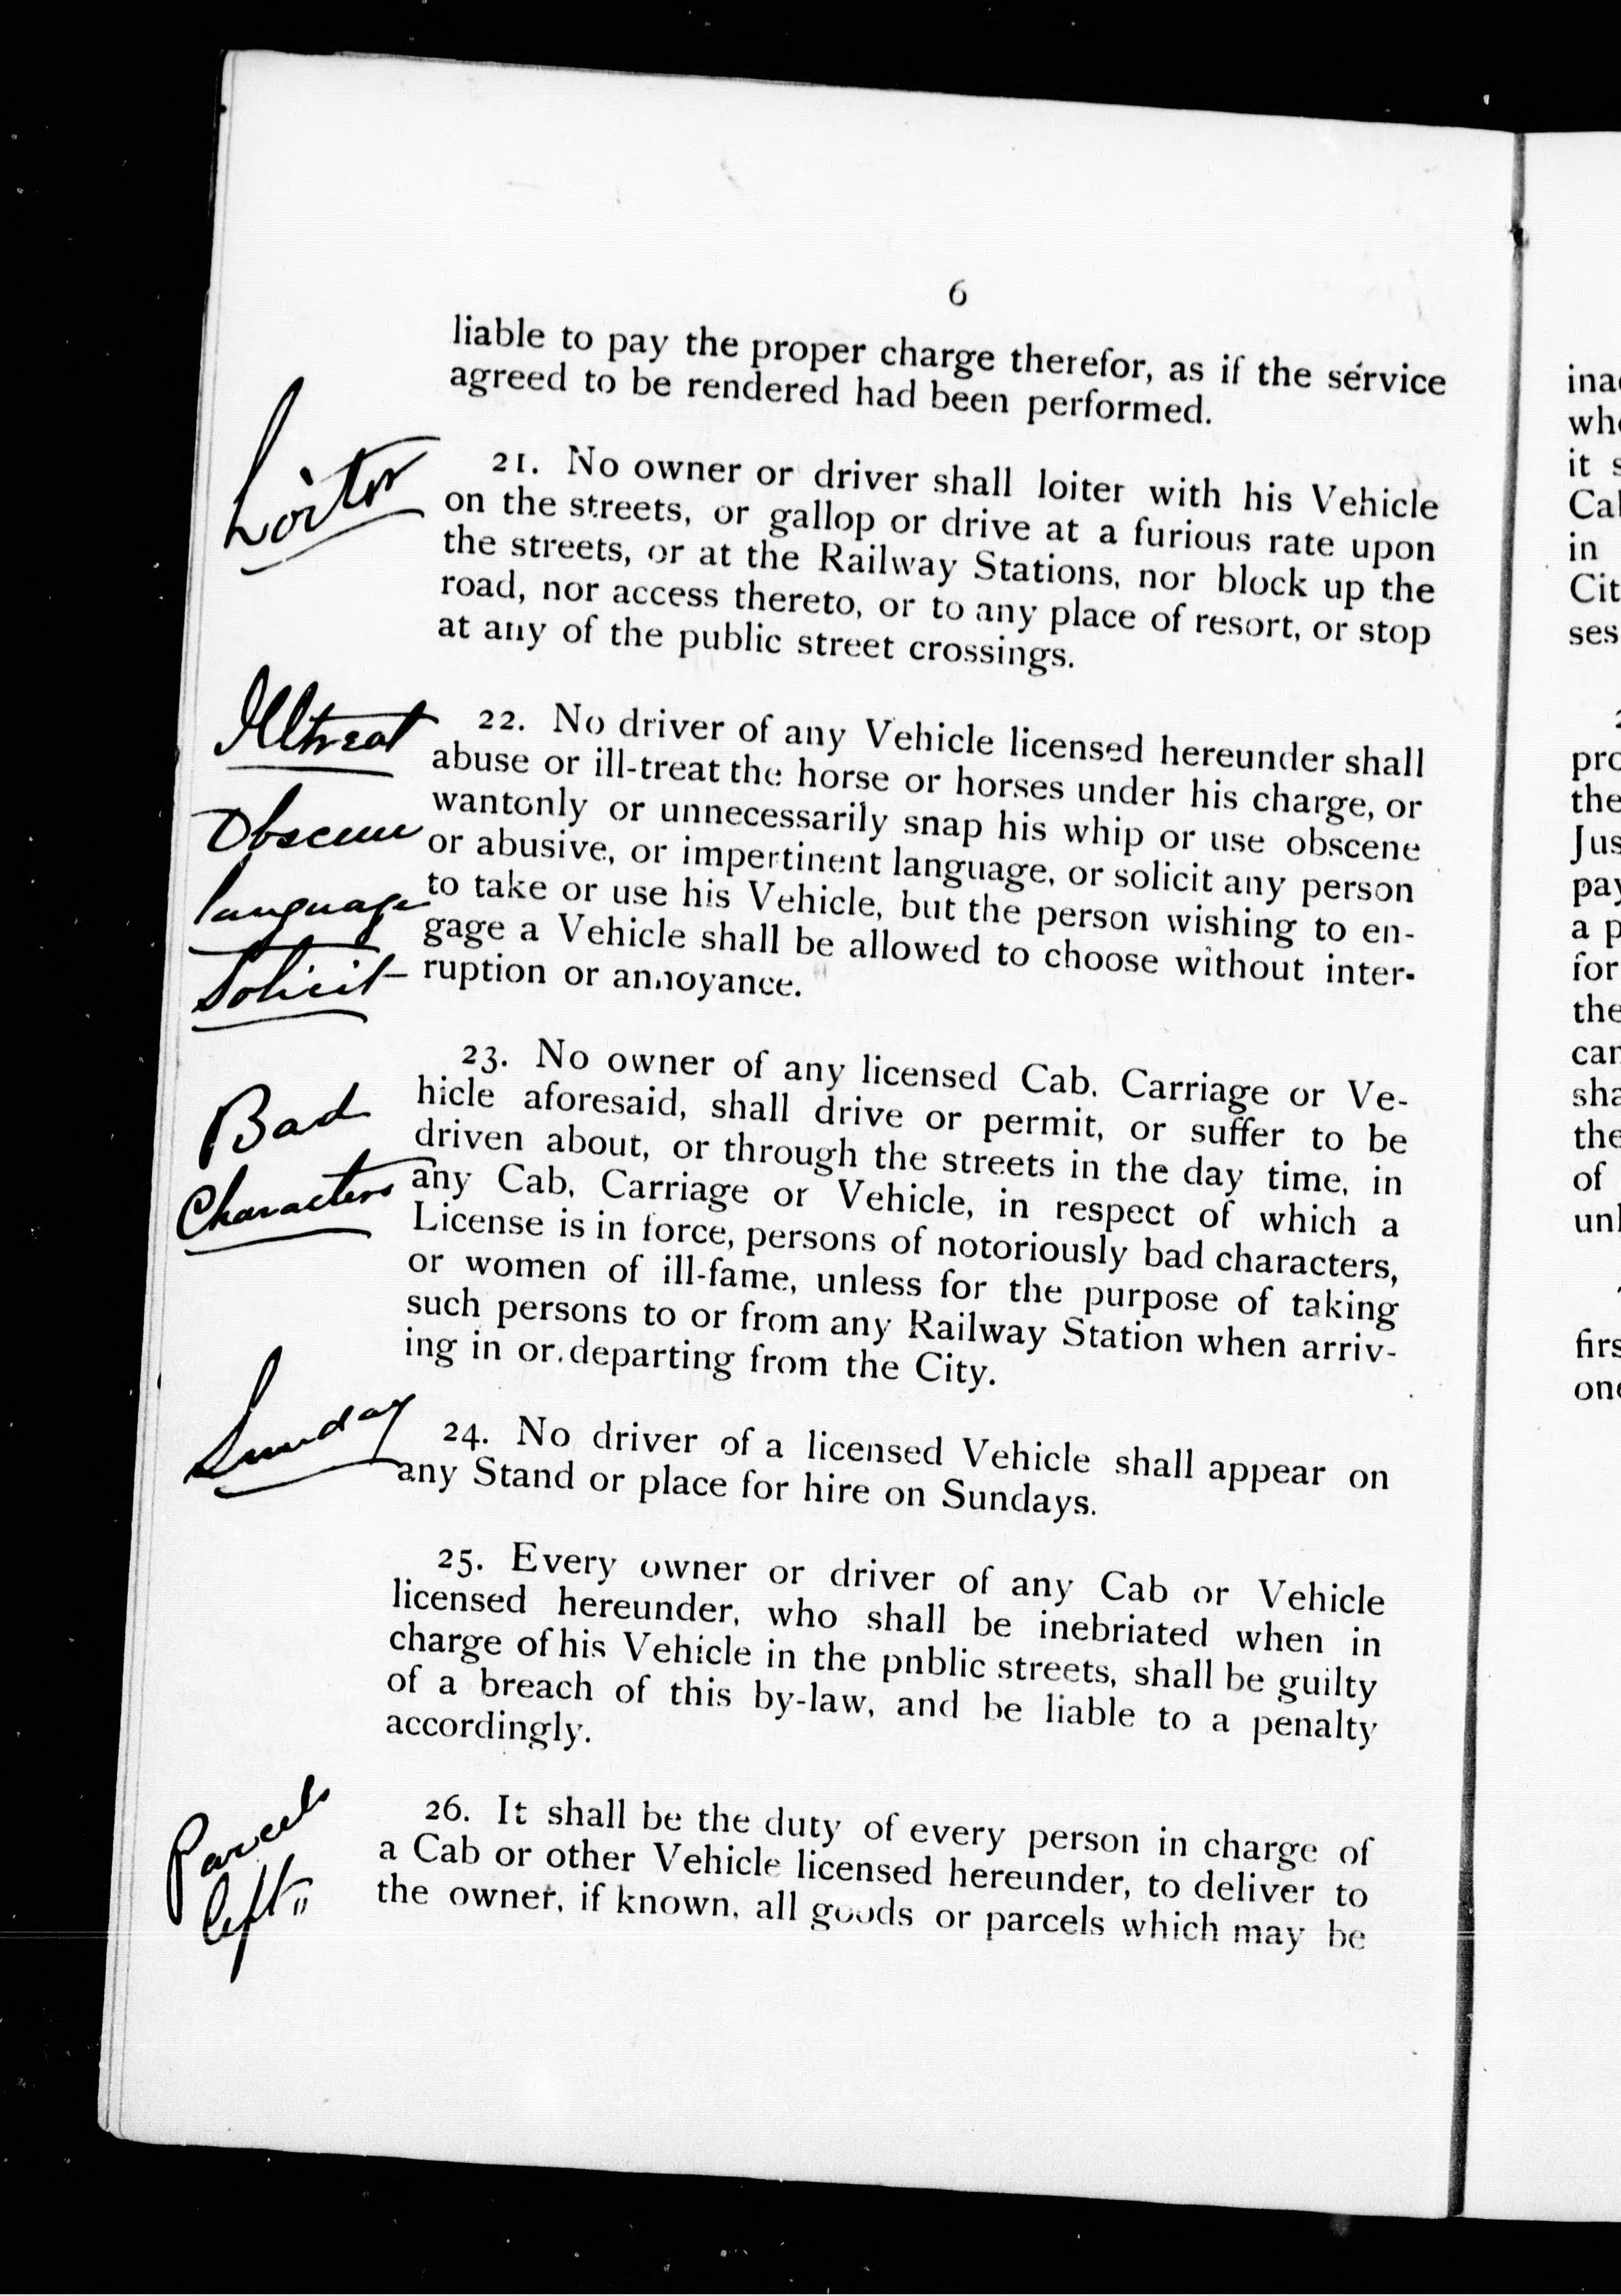 6
liable to pay the proper charge therefor, as if the service
agreed to be rendered had been performed.
Loiter
21. No owner or driver shall loiter with his Vehicle
on the streets, or gallop or drive at a furious rate upon
the streets, or at the Railway Stations, nor block up the
road, nor access thereto, or to any place of resort, or stop
at any of the public street crossings.
Illtreat
Obscene
language
Solicit
22. No driver of any Vehicle licensed hereunder shall
abuse or ill-treat the horse or horses under his charge, or
wantonly or unnecessarily snap his whip or use obscene
or abusive, or impertinent language, or solicit any person
to take or use his Vehicle, but the person wishing to en-
gage a Vehicle shall be allowed to choose without inter-
ruption or annoyance.
Bad
Characters
23. No owner of any licensed Cab, Carriage or Ve-
hicle aforesaid, shall drive or permit, or suffer to be
driven about, or through the streets in the day time, in
any Cab, Carriage or Vehicle, in respect of which a
License is in force, persons of notoriously bad characters,
or women of ill-fame, unless for the purpose of taking
such persons to or from any Railway Station when arriv-
ing in or departing from the City.
Sunday
24. No driver of a licensed Vehicle shall appear on
any Stand or place for hire on Sundays.
25. Every owner or driver of any Cab or Vehicle
licensed hereunder, who shall be inebriated when in
charge of his Vehicle in the pnblic streets, shall be guilty
of a breach of this by-law, and be liable to a penalty
accordingly.
Parcels
left "
26. It shall be the duty of every person in charge of
a Cab or other Vehicle licensed hereunder, to deliver to
the owner, if known, all goods or parcels which may be
it
in
the
pay
a
for
the
the
of